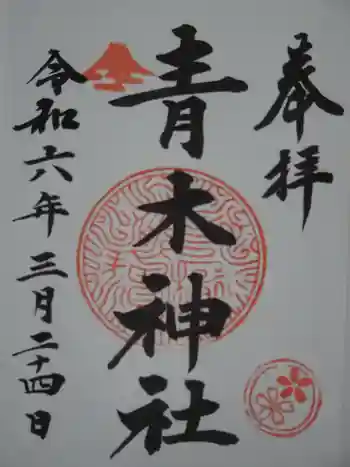 奉拝
青木神社
令和六年三月二十四日